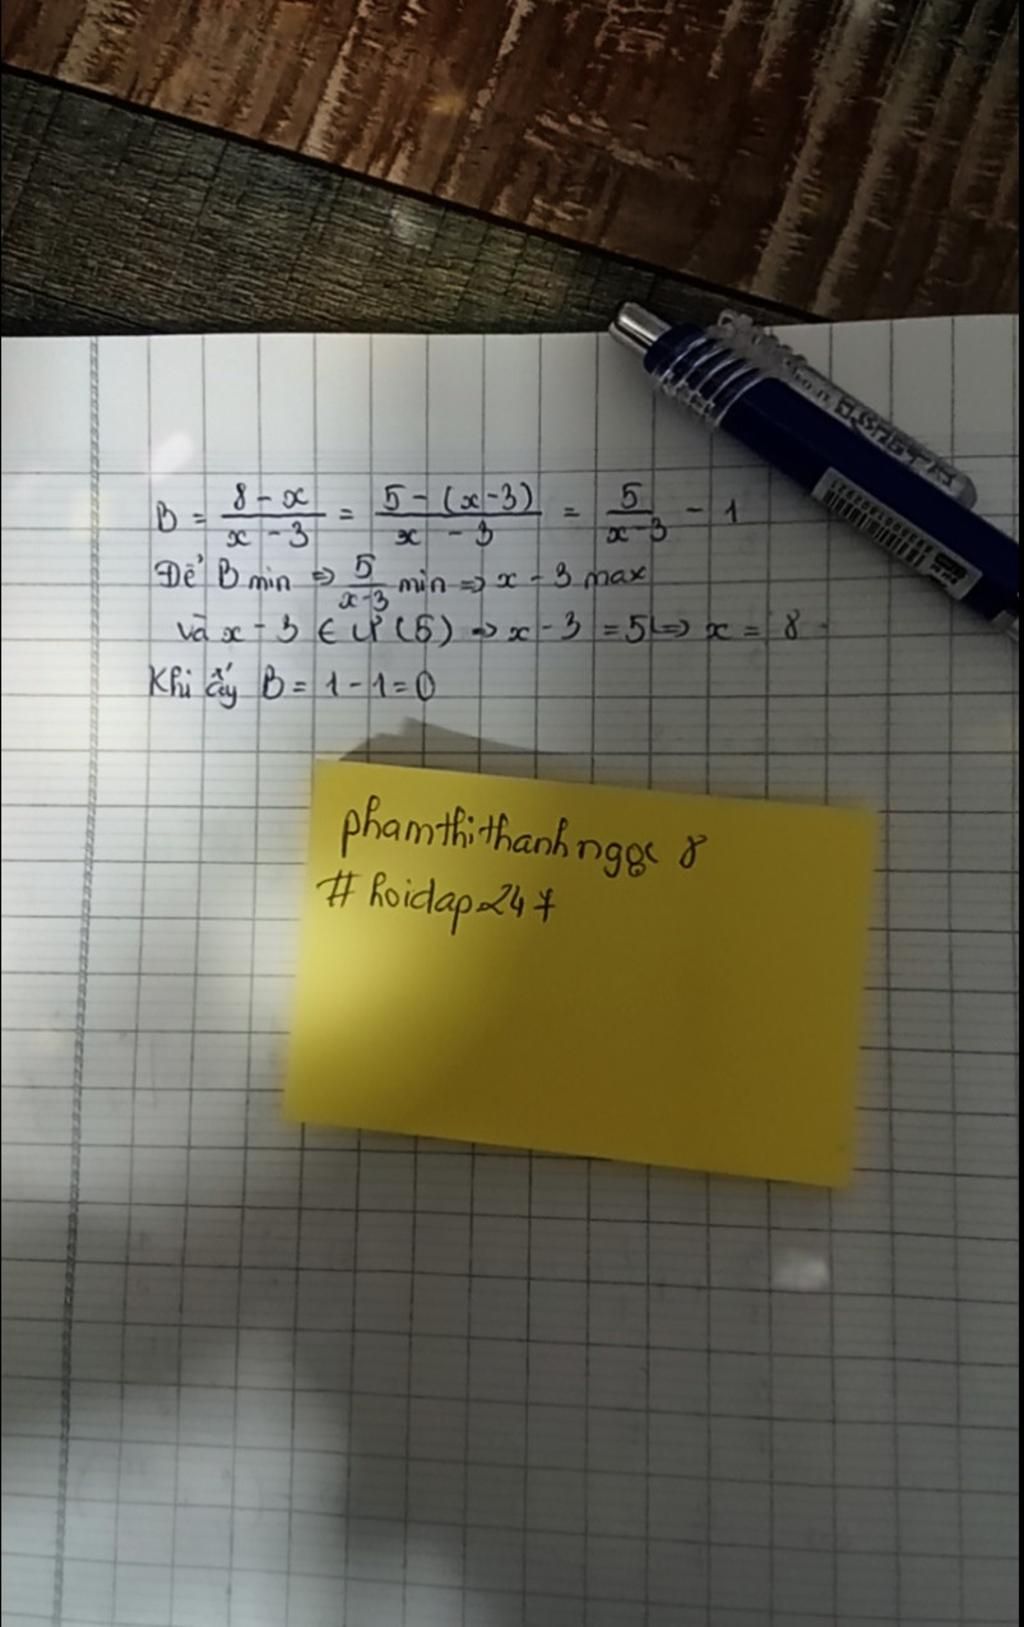 B = \frac{8-x}{x-3} = \frac{5-(x-3)}{x-3} = \frac{5}{x-3} - 1
Để B min => \frac{5}{x-3} min => x-3 max
và x-3 ∈ Ư(5) => x-3 = 5 => x = 8
Khi ấy B = 1-1=0
phamthithanhngọc 8
#hoidap247